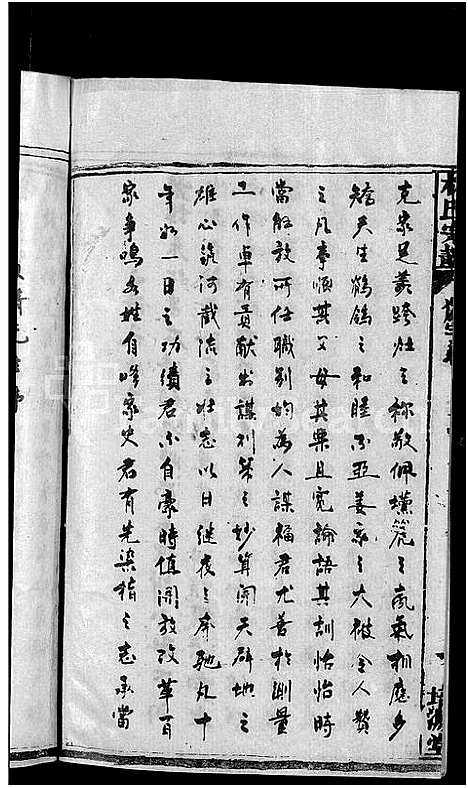 克家足羨跨灶之称敬佩壎篪之風氣相應手
矯天生鶺鴒之和睦不亞姜家之大被令人贊
之凡事順其父母其樂且寬論語其訓怡怡時
當解放所任職別均為人謀福君尤善於測量
工作卓有貢献出謀划策之妙算開天辟地之
雄心筑河截流之壮志以日继夜之奔馳凡十
年如一日之功績君不自豪時值開放改革百
家爭鳴各姓自峰家史君有先染指之志承當